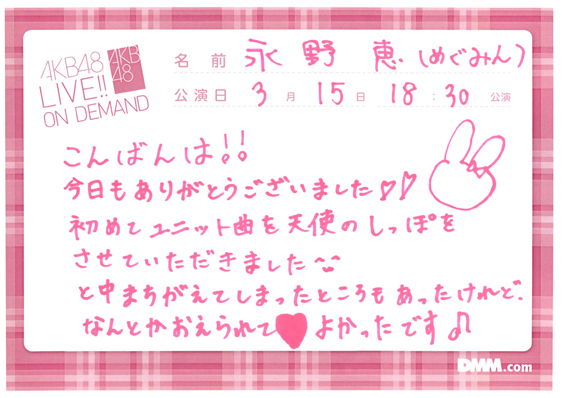 AKB48
LIVE!!
ON DEMAND
AKB
48
名前 永野 恵(めぐみん)
公演日 3月15日 18:30公演
こんばんは!!
今日もありがとうございました♡♡
初めてユニット曲を天使のしっぽを
させていただきました
と中まちがえてしまったところもあったけれど、
なんとかおえられて♥よかったです♪
DMM.com